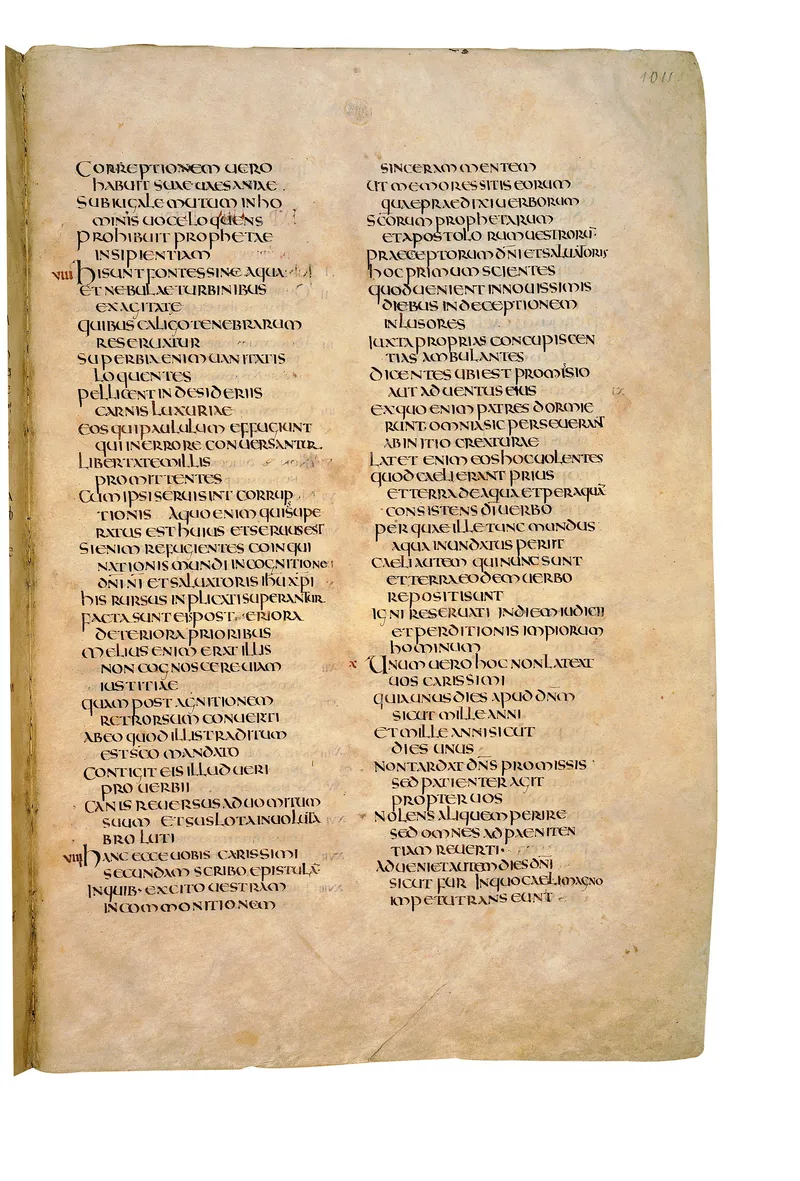 1011
CORREPTIONEM UERO
HABUIT SUAE UAESANIAE
SUBIUGALE MUTUM IN HO
MINIS UOCE LOQUENS
PROHIBUIT PROPHETAE
INSIPIENTIAM
VIII HI SUNT FONTES SINE AQUA
ET NEBULAE TURBINIBUS
EXAGITATE
QUIBUS CALIGO TENEBRARUM
RESERUATUR
SUPERBIA ENIM UANITATIS
LOQUENTES
PELLICENT IN DESIDERIIS
CARNIS LUXURIAE
EOS QUI PAULULUM EFFUGIUNT
QUI IN ERRORE CONUERSANTUR
LIBERTATEM ILLIS
PROMITTENTES
CUM IPSI SERUI SINT CORRUP
TIONIS A QUO ENIM QUIS SUPE
RATUS EST HUIUS ET SERUUS EST
SI ENIM REFUGIENTES COINQUI
NATIONIS MUNDI IN COGNITIONE
DNI NI ET SALUATORIS IHU XPI
HIS RURSUS INPLICATI SUPERANTUR
FACTA SUNT EIS POSTERIORA
DETERIORA PRIORIBUS
MELIUS ENIM ERAT ILLIS
NON COGNOSCERE UIAM
IUSTITIAE
QUAM POST AGNITIONEM
RETRORSUM CONUERTI
AB EO QUOD ILLIS TRADITUM
EST SCO MANDATO
CONTIGIT EIS ILLUD UERI
PROUERBII
CANIS REUERSUS AD UOMITUM
SUUM ET SUS LOTA IN UOLUTA
BRO LUTI
VIIII HANC ECCE UOBIS CARISSIMI
SECUNDAM SCRIBO EPISTULĀ
IN QUIB· EXCITO UESTRAM
IN COMMONITIONEM
SINCERAM MENTEM
UT MEMORES SITIS EORUM
QUAE PRAEDIXI UERBORUM
SCORUM PROPHETARUM
ET APOSTOLORUM UESTRORŪ
PRAECEPTORUM DNI ET SALUATORIS
HOC PRIMUM SCIENTES
QUOD UENIENT IN NOUISSIMIS
DIEBUS IN DECEPTIONEM
INLUSORES
IUXTA PROPRIAS CONCUPISCEN
TIAS AMBULANTES
DICENTES UBI EST PROMISIO
AUT ADUENTUS EIUS
EX QUO ENIM PATRES DORMIE
RUNT OMNIA SIC PERSEUERANT
AB INITIO CREATURAE
LATET ENIM EOS HOC UOLENTES
QUOD CAELI ERANT PRIUS
ET TERRA DE AQUA ET PER AQUĀ
CONSISTENS DI UERBO
PER QUAE ILLE TUNC MUNDUS
AQUA INUNDATUS PERIIT
CAELI AUTEM QUI NUNC SUNT
ET TERRA EODEM UERBO
REPOSITI SUNT
IGNI RESERUATI IN DIEM IUDICII
ET PERDITIONIS IMPIORUM
HOMINUM
X UNUM UERO HOC NON LATEAT
UOS CARISSIMI
QUIA UNUS DIES APUD DNM
SICUT MILLE ANNI
ET MILLE ANNI SICUT
DIES UNUS
NON TARDAT DNS PROMISSIS
SED PATIENTER AGIT
PROPTER UOS
NOLENS ALIQUEM PERIRE
SED OMNES AD PAENITEN
TIAM REUERTI·
ADUENIET AUTEM DIES DNI
SICUT FUR IN QUO CAELI MAGNO
IMPETU TRANSEUNT